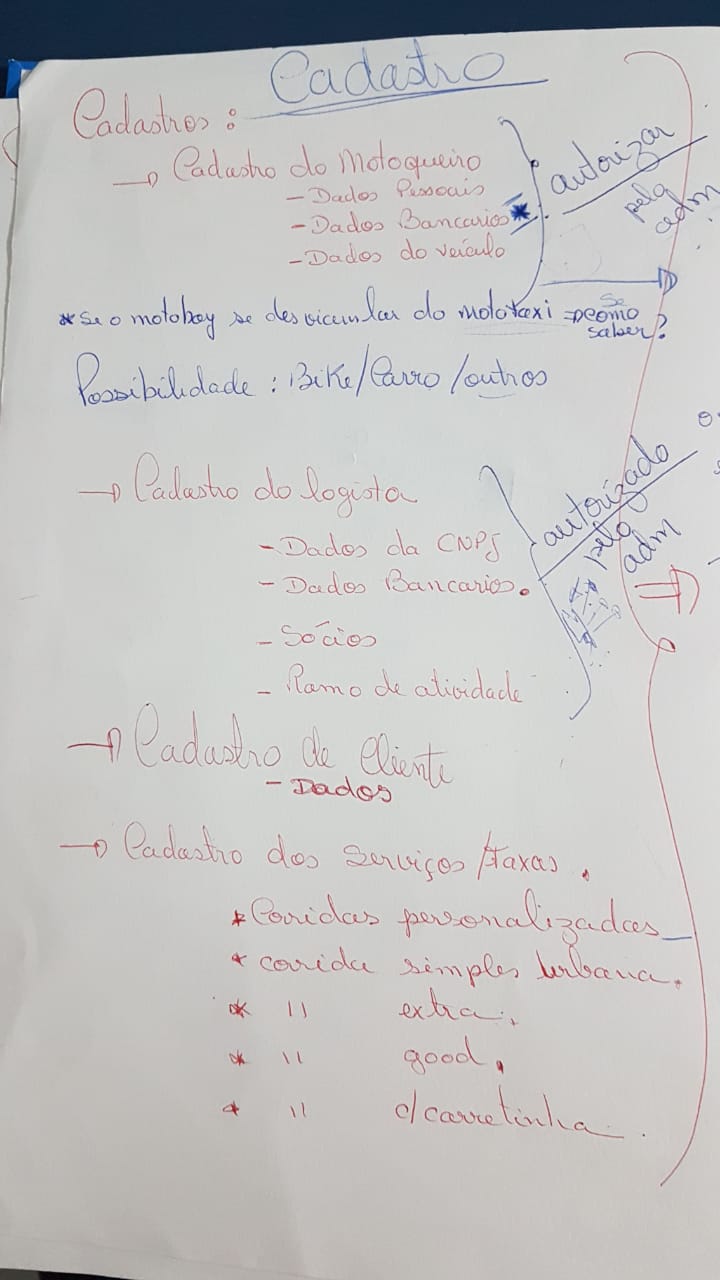 Cadastro
Cadastros:
→ Cadastro do Motoqueiro
- Dados Pessoais
- Dados Bancarios *
- Dados do veículo
autorizar
pelo
adm
* Se o motoboy se desvicular do mototaxi ⇒ Se
como
saber?
Possibilidade: Bike/Carro/outros
→ Cadastro do logista
- Dados da CNPJ
- Dados Bancarios.
- Sócios
- Ramo de atividade
autorizado
pelo
adm
→ Cadastro de Cliente
- Dados
→ Cadastro dos Serviços/taxas.
* Corridas personalizadas
* corrida simples Urbana.
* " extra.
* " good.
* " c/carretinha.